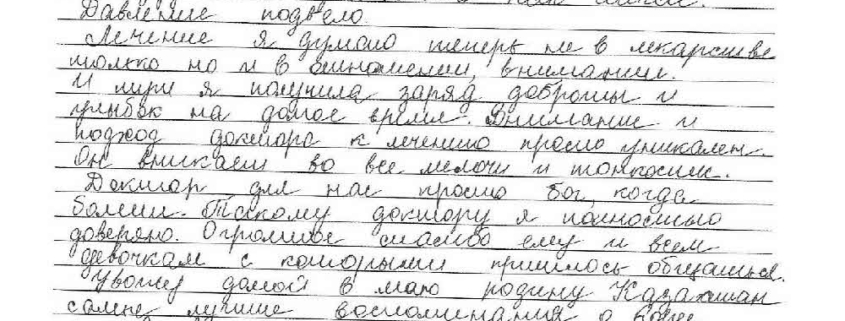 Давление подвело.
Лечение я думаю теперь не в лекарстве
только но и в отношении, внимании.
И тут я получила заряд доброты и
улыбок на долгое время. Внимание и
подход доктора к лечению просто уникален.
Он вникает во все мелочи и тонкости.
Доктор для нас просто бог, когда
болеем. Такому доктору я полностью
доверяю. Огромное спасибо ему и всем
девочкам с которыми пришлось общаться.
Увожу домой в маю родину Казахстан
самые лучшие воспоминания о